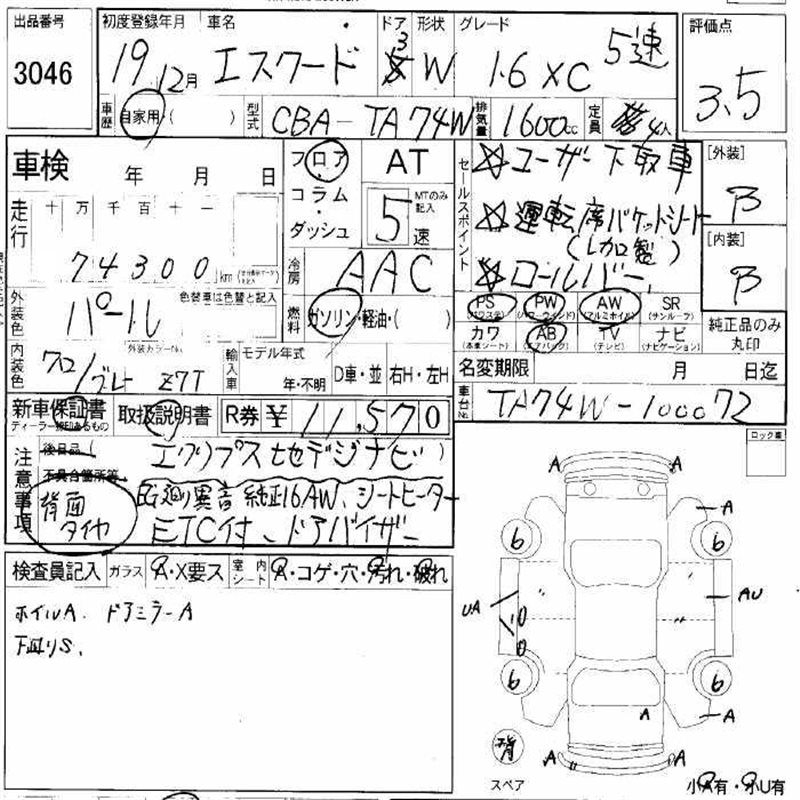 出品番号 初度登録年月 車名 ドア 形状 グレード 評価点
3046 19 12月 エスクード 3 W 1.6 XC 5速 3.5
車歴 自家用・( ) 型式 CBA-TA74W 排気量 1600cc 定員 4人
車検 年 月 日 フロア AT セールスポイント ☆ユーザー下取車 [外装]
走行 十 万 千 百 十 一 コラム・ダッシュ 5速 MTのみ記入 ☆運転席バケットシート B
(レカロ製) [内装]
74300 km 冷房 AAC ☆ロールバー B
外装色 パール 色替車は色替と記入 燃料 ガソリン・軽油・( ) PS (パワステ) PW (パワーウインド) AW (アルミホイル) SR (サンルーフ)
外装カラーNo. カワ (本革シート) AB (エアバック) TV (テレビ) ナビ (ナビゲーション) 純正品のみ丸印
内装色 クロ/グレー Z7T 輸入車 モデル年式 年・不明 D車・並 右H・左H 名変期限 月 日迄
新車保証書 取扱説明書 R券 ¥ 11,570 車台No. TA74W-100072
ディーラー捺印あるもの ロック車
注意事項 後日品( エクリプス地デジナビ)
不具合箇所等、 異音 純正16AW、シートヒーター
背面タイヤ ETC付、ドアバイザー
検査員記入 ガラス A・X要ス 室内シート A・コゲ・穴・汚れ・破れ
ホイルA. ドアミラーA
下廻りS.
A A
A
6 6
UA AU
6 6
A A
背
A A
スペア 小A有・小U有